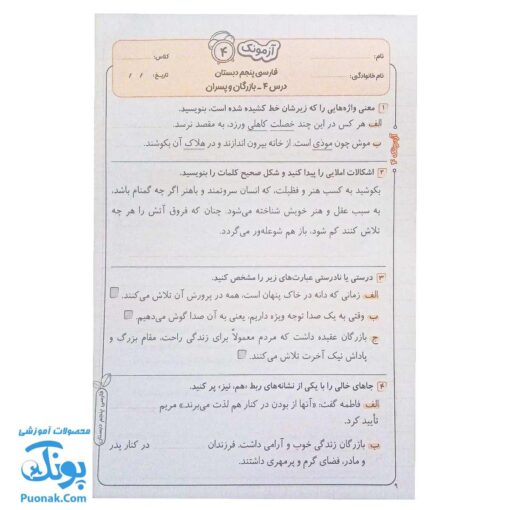 آزمونک ۴
نام:
کلاس:
فارسی پنجم دبستان
نام خانوادگی:
تاریخ: / /
درس ۴ ـ بازرگان و پسران
۱ معنی واژه‌هایی را که زیرشان خط کشیده شده است، بنویسید.
الف هر کس در این چند خصلت کاهلی ورزد، به مقصد نرسد.
ب موش چون موذی است. از خانه بیرون اندازند و در هلاک آن بکوشند.
آزمونک ۴
۲ اشکالات املایی را پیدا کنید و شکل صحیح کلمات را بنویسید.
بکوشید به کسب هنر و فظیلت، که انسان سروتمند و باهنر اگر چه گمنام باشد،
به سبب عقل و هنر خویش شناخته می‌شود. چنان که فروق آتش را هر چه
تلاش کنند کم شود، باز هم شوعله‌ور می‌گردد.
۳ درستی یا نادرستی عبارت‌های زیر را مشخص کنید.
الف زمانی که دانه در خاک پنهان است، همه در پرورش آن تلاش می‌کنند.
ب وقتی به یک صدا توجه ویژه داریم، یعنی به آن صدا گوش می‌دهیم.
ج بازرگان عقیده داشت که مردم معمولاً برای زندگی راحت، مقام بزرگ و
پاداش نیک آخرت تلاش می‌کنند.
۴ جاهای خالی را با یکی از نشانه‌های ربط «هم، نیز» پر کنید.
الف فاطمه گفت: «آنها از بودن در کنار هم لذت می‌برند.» مریم
تأیید کرد.
ب بازرگان زندگی خوب و آرامی داشت. فرزندان در کنار پدر
و مادر، فضای گرم و پرمهری داشتند.
فارسی پنجم دبستان
محصولات آموزشی
پونک
Puonak.Com